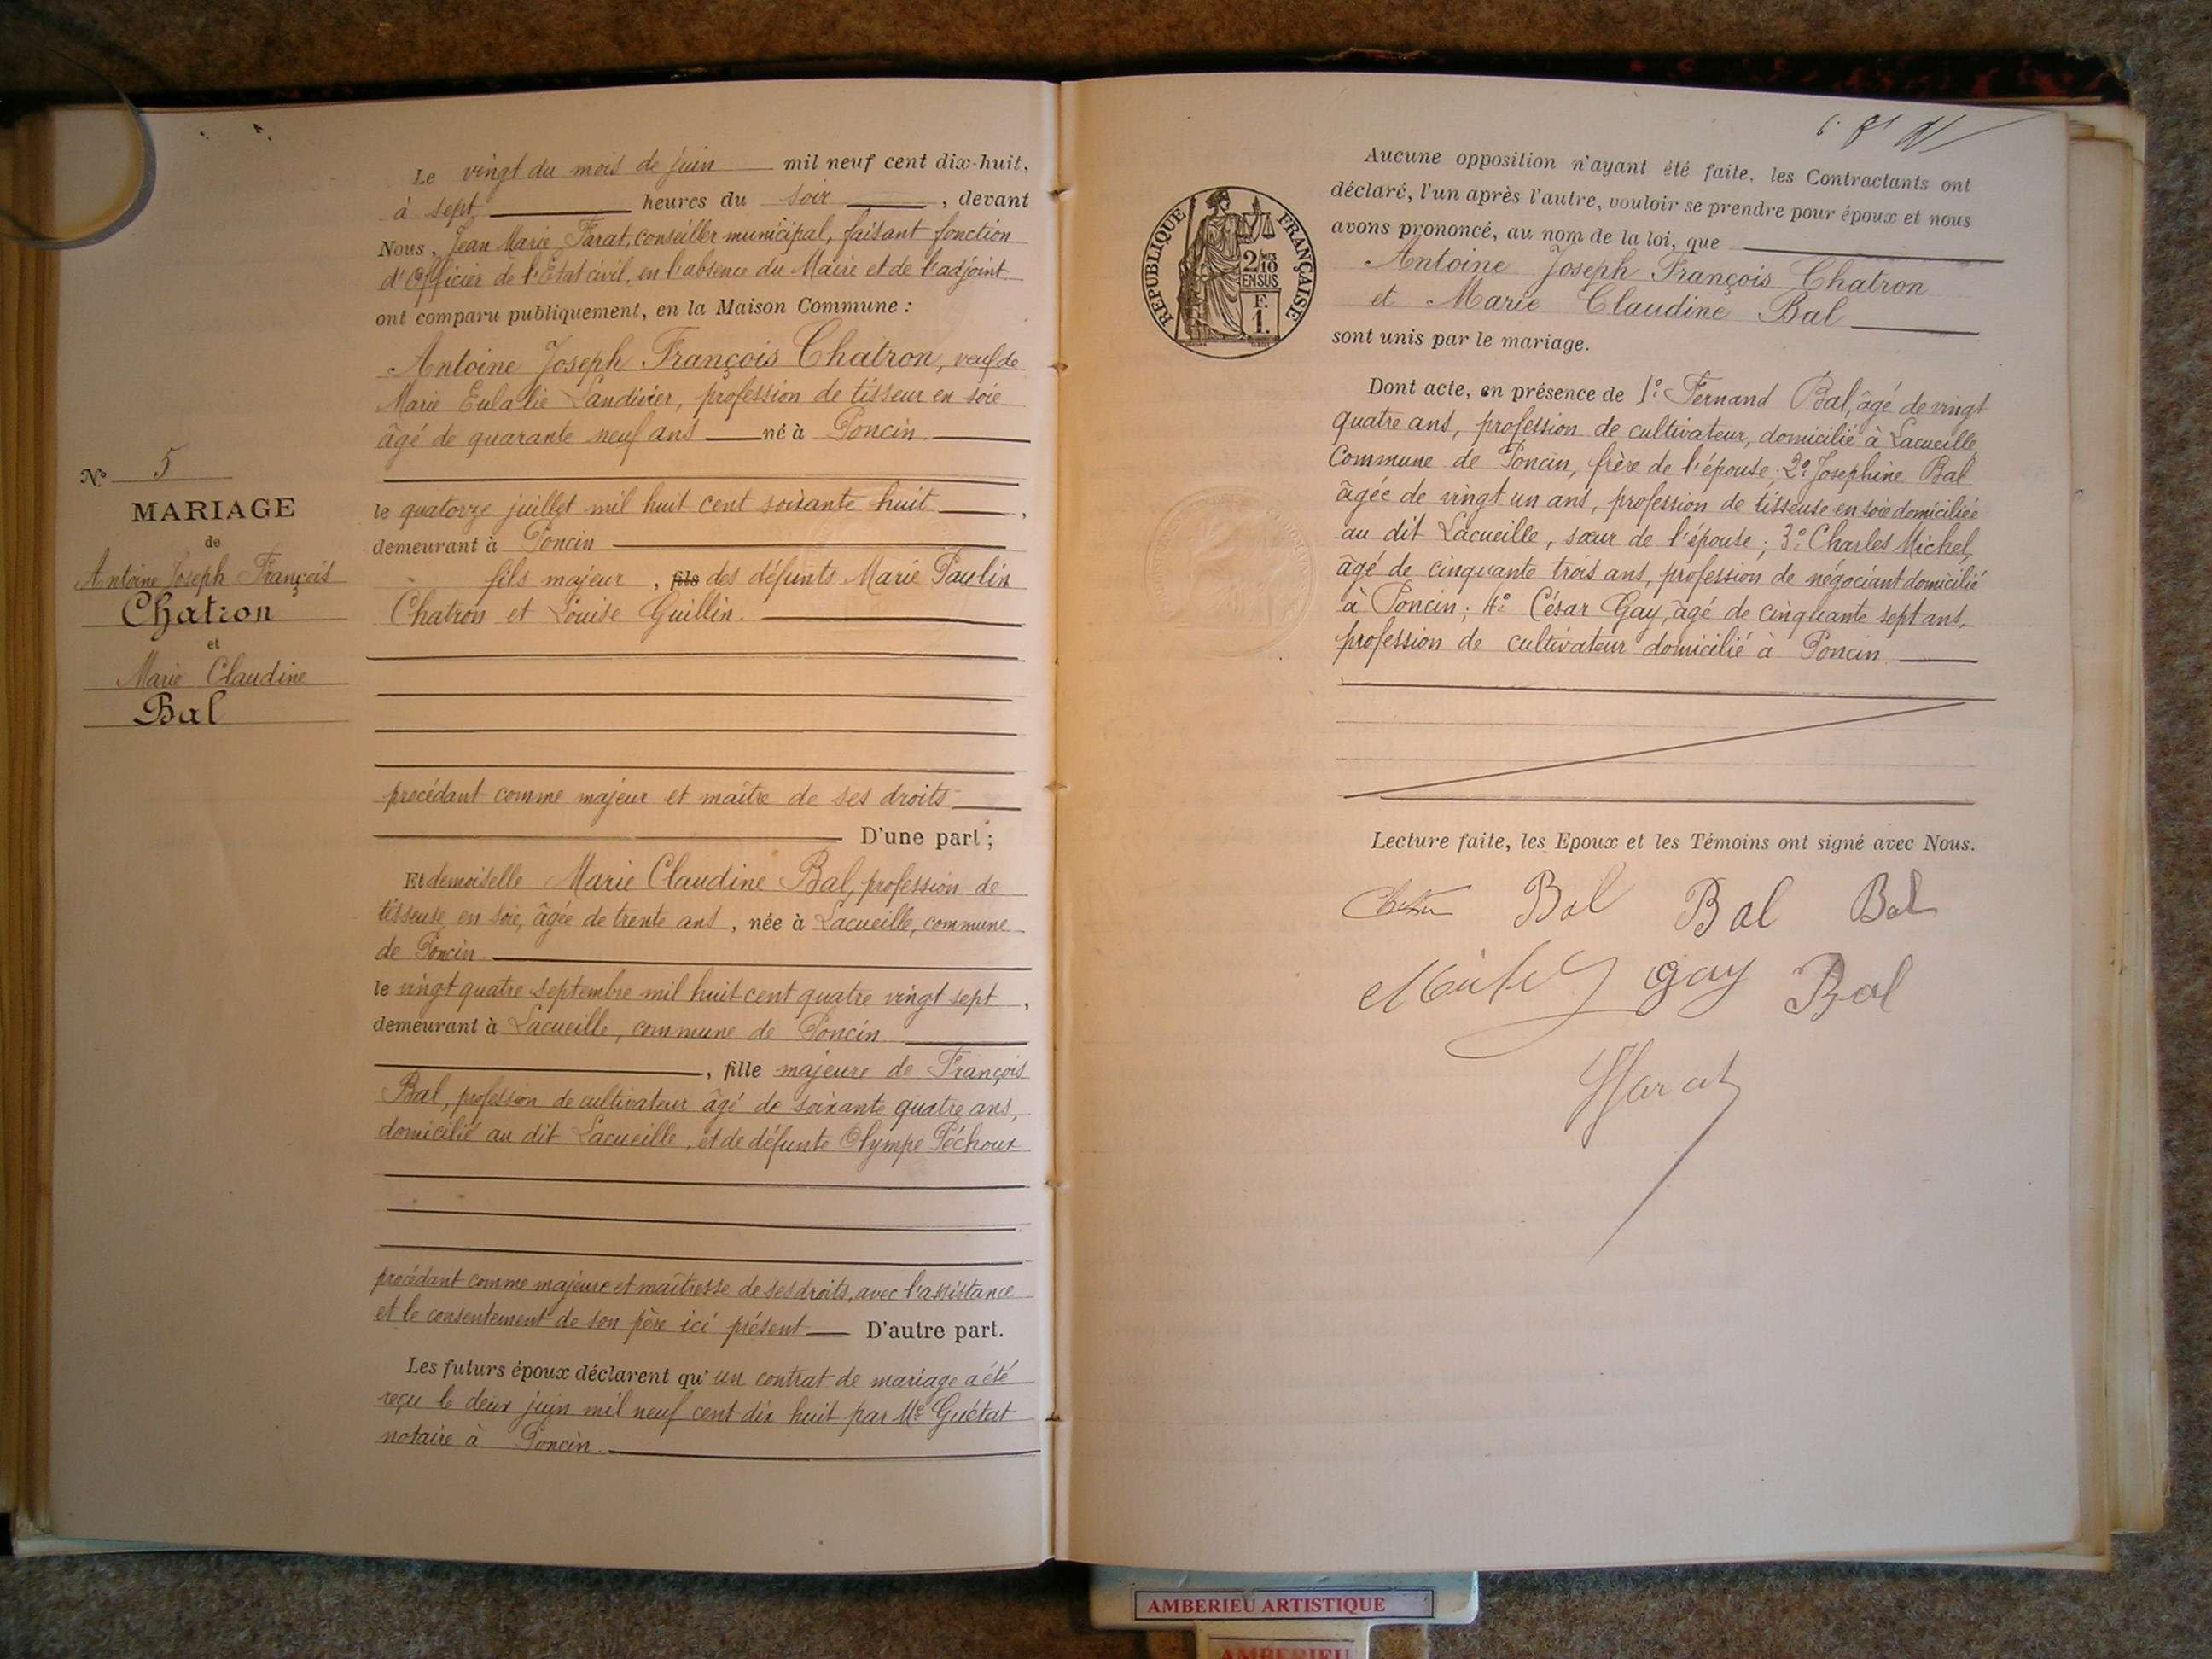 N° 5
MARIAGE
de
Antoine Joseph François
Chatron
et
Marie Claudine
Bal
Le vingt du mois de juin mil neuf cent dix-huit,
à sept heures du soir, devant
Nous, Jean Marie Farat, conseiller municipal, faisant fonction
d'Officier de l'Etat civil, en l'absence du Maire et de l'adjoint
ont comparu publiquement, en la Maison Commune :
Antoine Joseph François Chatron, veuf de
Marie Eulalie Landivier, profession de tisseur en soie
âgé de quarante neuf ans né à Poncin
le quatorze juillet mil huit cent soixante huit,
demeurant à Poncin
fils majeur, fils des défunts Marie Paulin
Chatron et Louise Guillin.
procédant comme majeur et maître de ses droits
D'une part ;
Et demoiselle Marie Claudine Bal, profession de
tisseuse en soie, âgée de trente ans, née à Lacueille, commune
de Poncin.
le vingt quatre septembre mil huit cent quatre vingt sept,
demeurant à Lacueille, commune de Poncin
, fille majeure de François
Bal, profession de cultivateur âgé de soixante quatre ans,
domicilié au dit Lacueille, et de défunte Olympe Péchoux
procédant comme majeure et maîtresse de ses droits, avec l'assistance
et le consentement de son père ici présent D'autre part.
Les futurs époux déclarent qu'un contrat de mariage a été
reçu le deux juin mil neuf cent dix huit par Me Guétat
notaire à Poncin.
RÉPUBLIQUE FRANÇAISE
2/10
EN SUS
F.
1.
Aucune opposition n'ayant été faite, les Contractants ont
déclaré, l'un après l'autre, vouloir se prendre pour époux et nous
avons prononcé, au nom de la loi, que
Antoine Joseph François Chatron
et Marie Claudine Bal
sont unis par le mariage.
Dont acte, en présence de 1° Fernand Bal, âgé de vingt
quatre ans, profession de cultivateur, domicilié à Lacueille,
Commune de Poncin, frère de l'épouse; 2° Josephine Bal
âgée de vingt un ans, profession de tisseuse en soie domiciliée
au dit Lacueille, sœur de l'épouse; 3° Charles Michel,
âgé de cinquante trois ans, profession de négociant domicilié
à Poncin; 4° César Gay, âgé de cinquante sept ans,
profession de cultivateur domicilié à Poncin
Lecture faite, les Epoux et les Témoins ont signé avec Nous.
Chatron Bal Bal Bal
Michel Gay Bal
Farat
AMBERIEU ARTISTIQUE
AMBERIEU